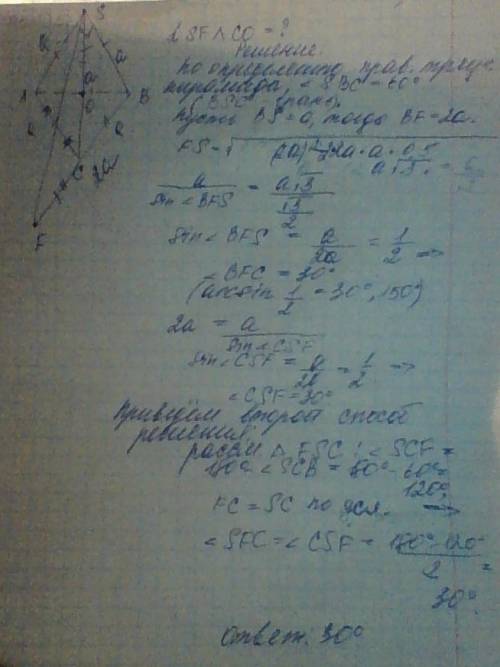 S
a
a
a
A
O
B
a
C
2a
F
∠ SF ∧ CO = ?
Решение.
По определению прав. треуг.
пирамиды, ∠ SBC = 60°
(BSC - грань).
Пусть BS = a, тогда BF = 2a.
FS =
a / sin ∠ BFS = a√3 / (√3 / 2)
sin ∠ BFS = a / 2a = 1 / 2 =>
∠ BFC = 30°
(arcsin 1/2 = 30°, 150°)
2a = a / sin ∠ CSF
sin ∠ CSF = a / 2a = 1 / 2 =>
∠ CSF = 30°
Приведём второй способ
решения.
рассм. △ FSC: ∠ SCF =
180° - ∠ SCB = 180° - 60° =
120°
FC = SC по усл. =>
∠ SFC = ∠ CSF = (180° - 120°) / 2 =
30°
Ответ: 30°